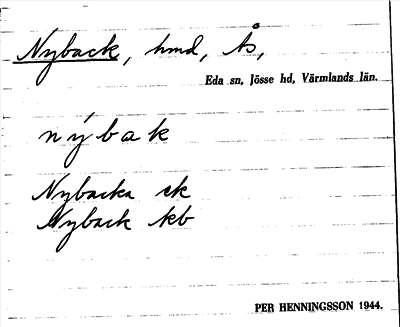 Nyback, hmd, Ås,
Eda sn, Jösse hd, Värmlands län.
nýbak
Nybacka ek
Nyback kb
PER HENNINGSSON 1944.